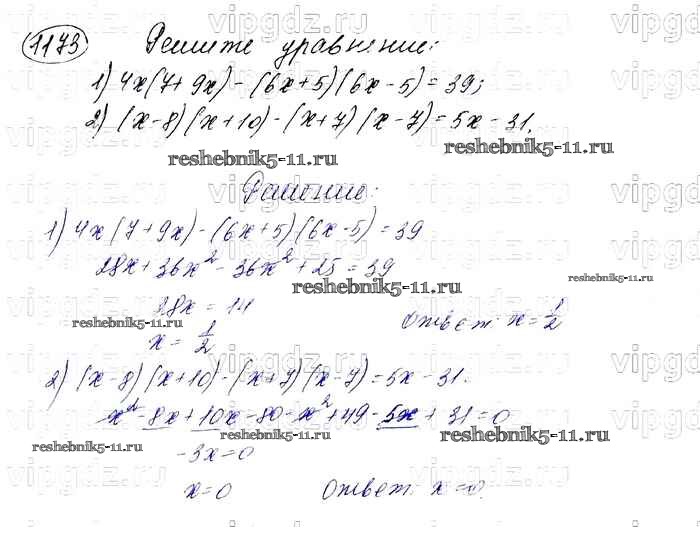 vipgdz.ru vipgdz.ru vipgdz.ru vipgdz.ru
1173 Решите уравнение:
1) 4x(7+9x)-(6x+5)(6x-5)=39;
2) (x-8)(x+10)-(x+7)(x-7)=5x-31.
reshebnik5-11.ru reshebnik5-11.ru
Решение:
1) 4x(7+9x)-(6x+5)(6x-5)=39
28x+36x²-36x²+25=39
reshebnik5-11.ru reshebnik5-11.ru
28x=14
reshebnik5-11.ru
x=1/2 Ответ: x=1/2
vipgdz.ru vipgdz.ru vipgdz.ru vipgdz.ru
2) (x-8)(x+10)-(x+7)(x-7)=5x-31.
x²-8x+10x-80-x²+49-5x+31=0
reshebnik5-11.ru reshebnik5-11.ru reshebnik5-11.ru
-3x=0
x=0 Ответ: x=0.